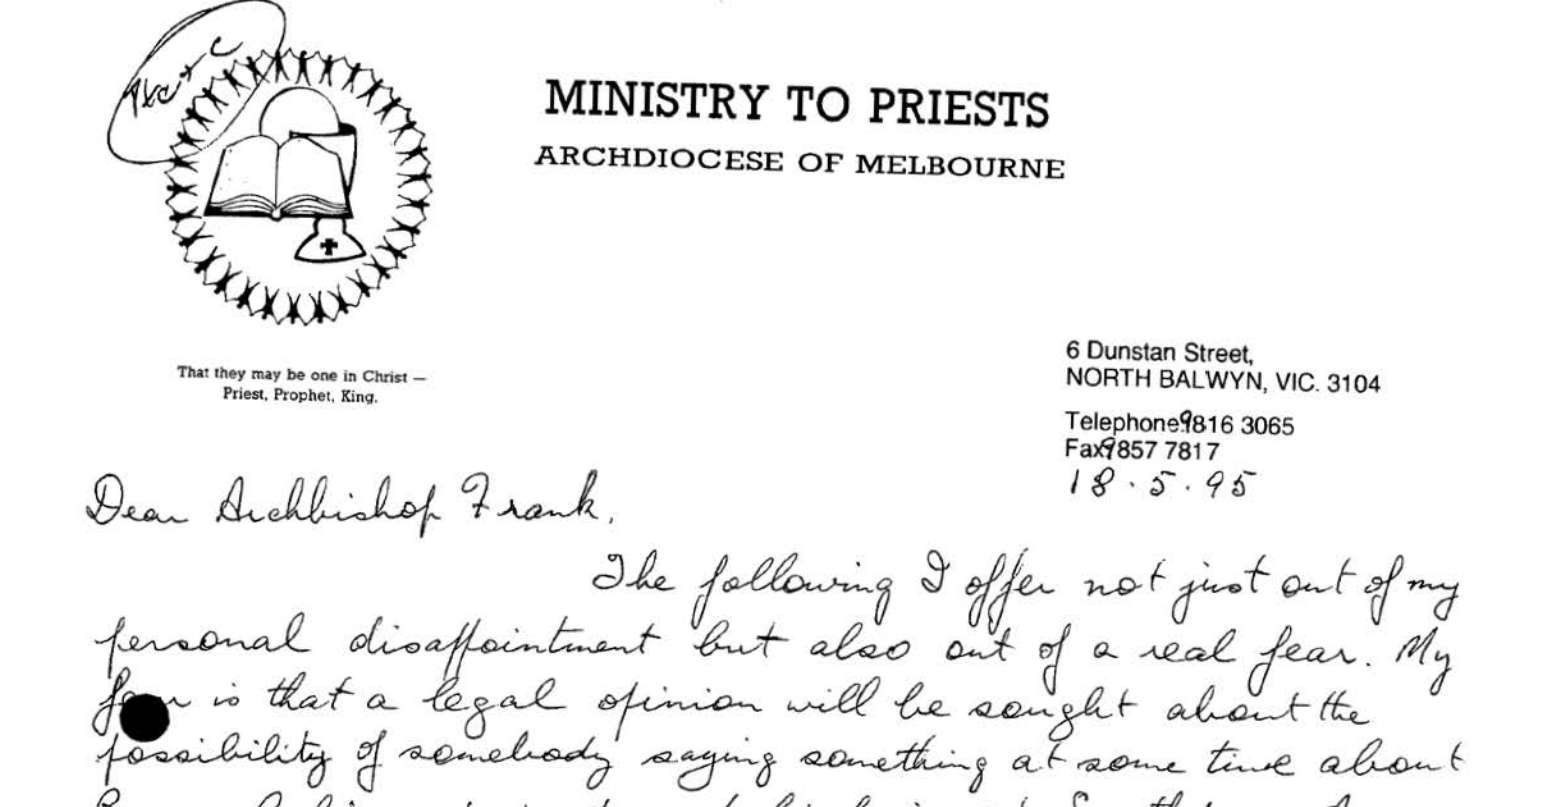 MINISTRY TO PRIESTS
ARCHDIOCESE OF MELBOURNE
That they may be one in Christ —
Priest, Prophet, King.
6 Dunstan Street,
NORTH BALWYN, VIC. 3104
Telephone 9816 3065
Fax 9857 7817
18.5.95
Dear Archbishop Frank,
The following I offer not just out of my
personal disappointment but also out of a real fear. My
fear is that a legal opinion will be sought about the
possibility of somebody saying something at some time about